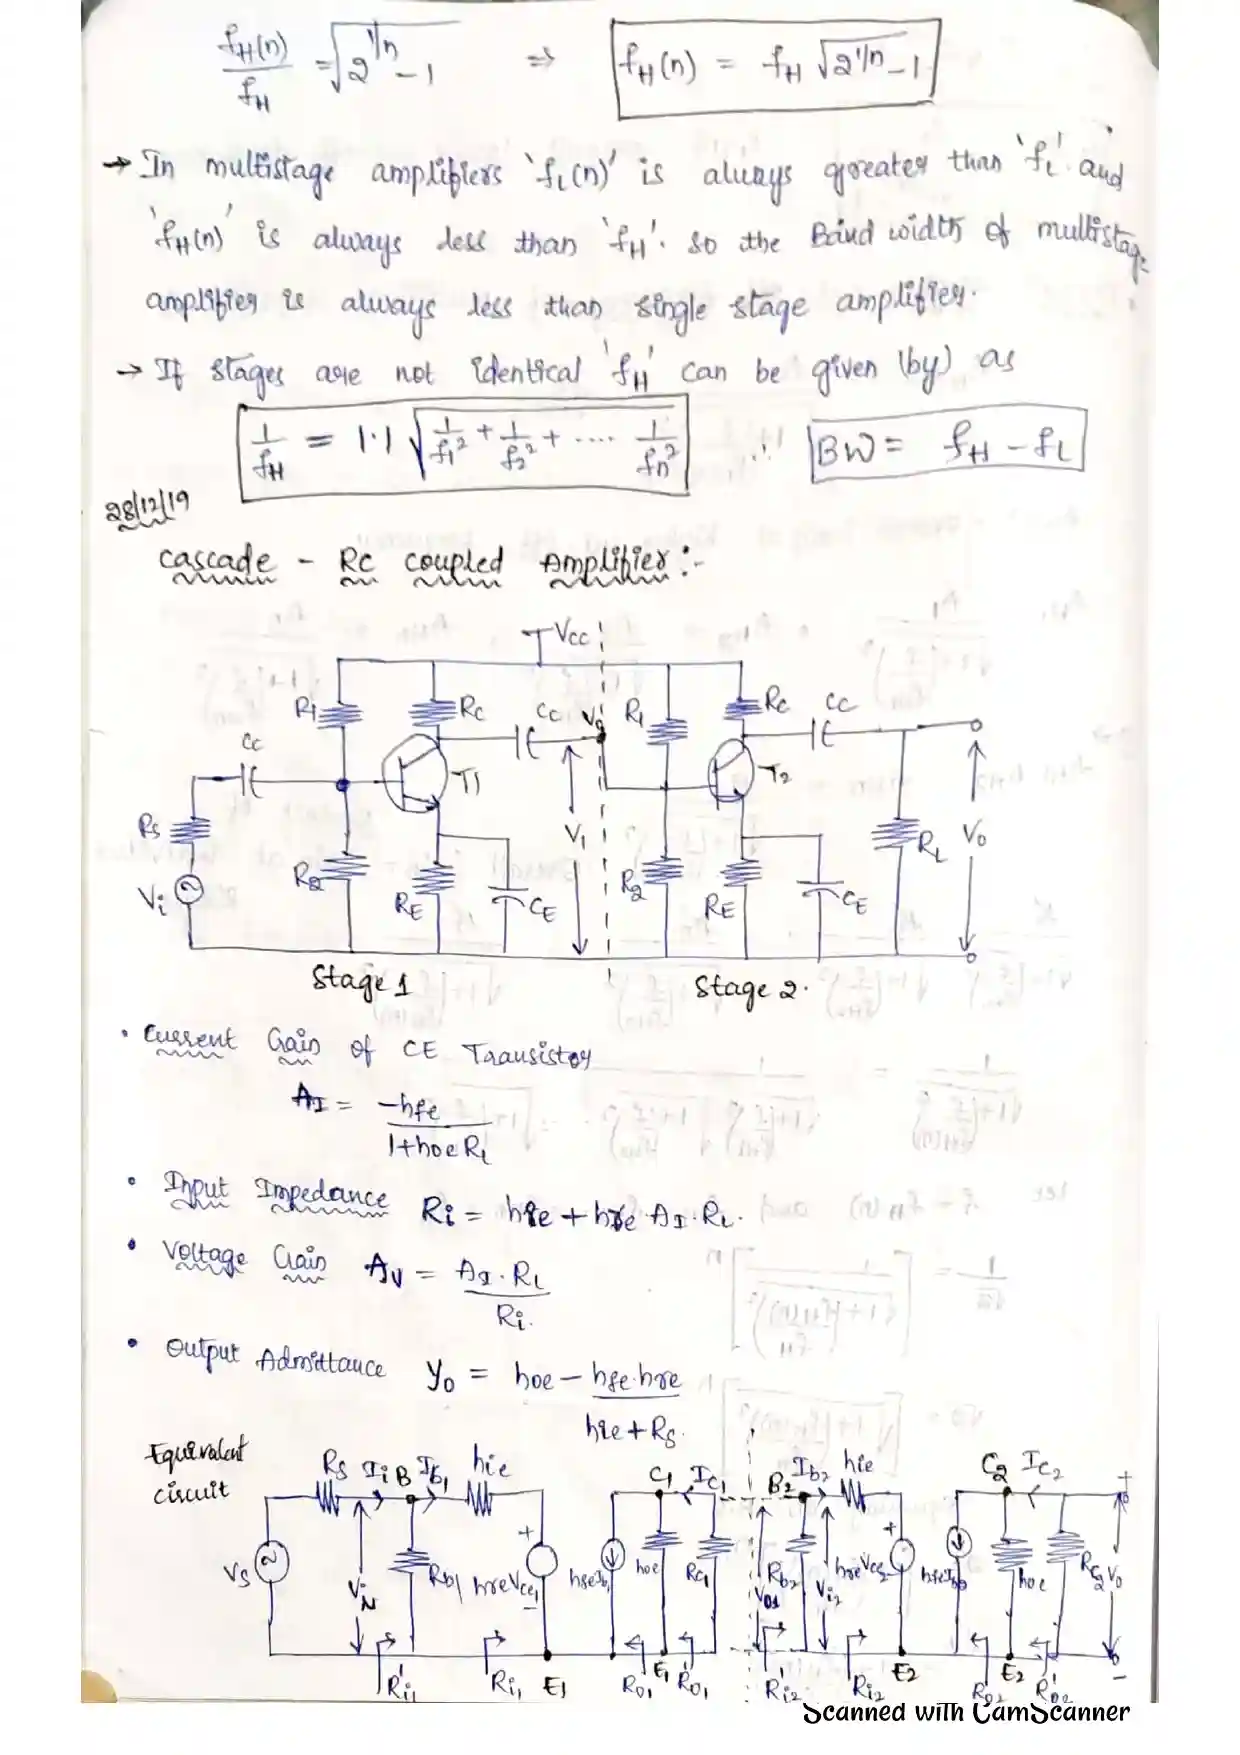 fH(n)/fH = √(2^1/n − 1) ⇒ fH(n) = fH √(2^1/n − 1)
→ In multistage amplifiers 'fL(n)' is always greater than 'fL' and
'fH(n)' is always less than 'fH'. so the Band width of multistage
amplifier is always less than single stage amplifier.
→ If stages are not identical 'fH' can be given (by) as
1/fH = 1.1 √(1/f1² + 1/f2² + .... 1/fn²) ∴ BW = fH − fL
28/12/19
Cascade - RC coupled Amplifier :-
Vcc
R1 RC CC R1 RC CC
CC T1 T2
RS V1 RL Vo
Vi R2 RE CE R2 RE CE
Stage 1 Stage 2.
• Current Gain of CE Transistor
AI = −hfe / 1+hoe RL
• Input Impedance Ri = hie + hre . AI . RL.
• Voltage Gain AV = AI . RL / Ri.
• Output Admittance yo = hoe − hfe.hre / hie + RS.
Equivalent
circuit
RS Ii B Ib1 hie C1 IC1 B2 Ib2 hie C2 IC2 +
VS ViN Rb1 hreVce1 + − hfeIb1 hoe RC1 Vo1 Rb2 Vi2 hreVce2 + hoe RC2 Vo
R'i1 Ri1 E1 Ro1 E1 R'o1 R'i2 Ri2 E2 Ro2 E2 R'o2 −
Scanned with CamScanner